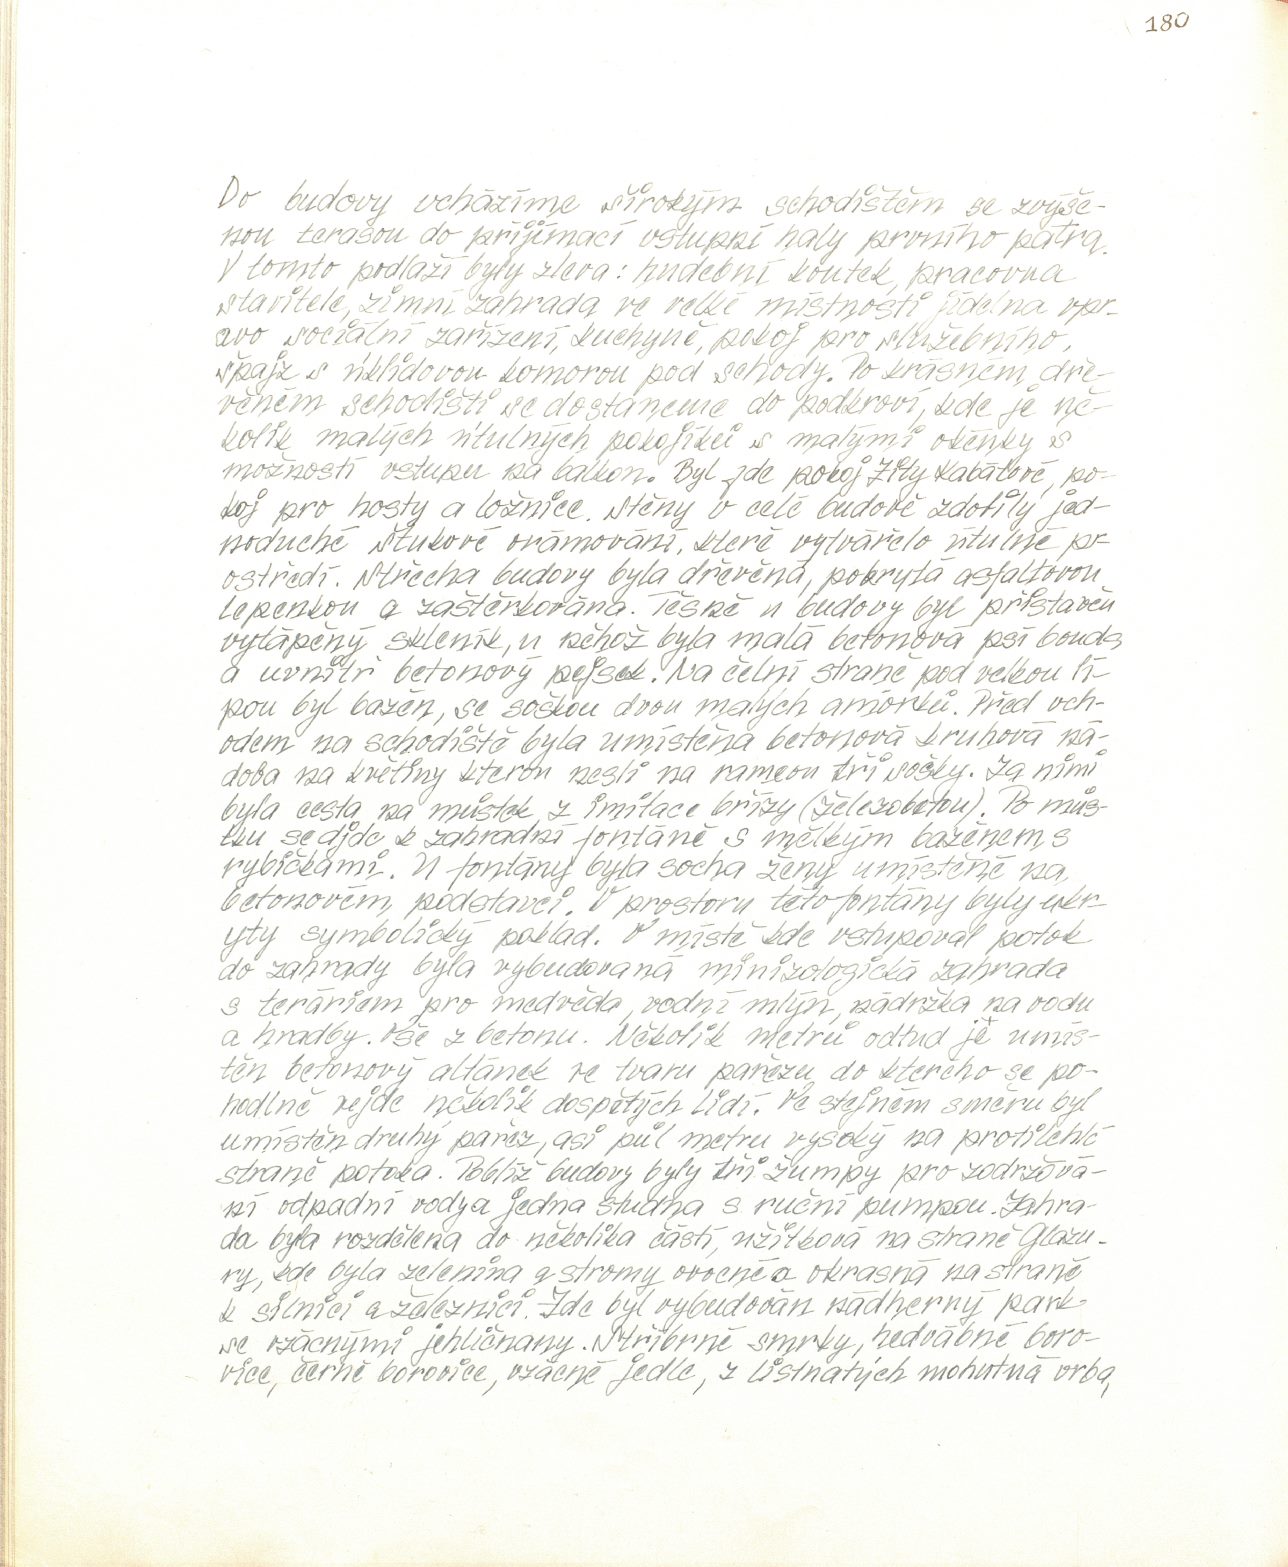 180
Do budovy vcházíme širokým schodištěm se zvýše-
nou terasou do přijímací vstupní haly prvního patra.
V tomto podlaží byly zleva: hudební koutek, pracovna
stavitele, zimní zahrada ve velké místnosti jídelna vpr-
avo sociální zařízení, kuchyně, pokoj pro služebního,
špajz s úklidovou komorou pod schody. Po krásném dře-
věném schodišti se dostaneme do podkroví, kde je ně-
kolik malých útulných pokojíků s malými okénky s
možností vstupu na balkon. Byl zde pokoj Zity Kabátové, po-
koj pro hosty a ložnice. Stěny v celé budově zdobily jed-
noduché štukové orámování, které vytvářelo útulné pr-
ostředí. Střecha budovy byla dřevěná, pokrytá asfaltovou
lepenkou a zaštěrkována. Těsně u budovy byl přistavěn
vytápěný skleník, u něhož byla malá betonová psí bouda
a uvnitř betonový pejsek. Na čelní straně pod velkou lí-
pou byl bazén, se soškou dvou malých amorků. Před vch-
odem na schodiště byla umístěna betonová kruhová ná-
doba na květiny kterou nesli na rameou tři sošky. Za nimi
byla cesta na můstek z imitace břízy (železobeton). Po můs-
tku se djde k zahradní fontáně s mělkým bazénem s
rybičkami. U fontány byla socha ženy umístěné na
betonovém podstavci. V prostoru této fontány byly ukr-
yty symbolický poklad. V místě kde vstupoval potok
do zahrady byla vybudovaná minizologická zahrada
s teráriem pro medvěda, vodní mlýn, nádržka na vodu
a hradby. Vše z betonu. Několik metrů odtud je umís-
těn betonový altánek ve tvaru pařezu do kterého se po-
hodlně vejde několik dospělých lidí. Ve stejném směru byl
umístěn druhý pařez, asi půl metru vysoký na protilehlé
straně potoka. Poblíž budovy byly tři žumpy pro zadržová-
ní odpadní vody a jedna studna s ruční pumpou. Zahra-
da byla rozdělena do několika částí, užitková na straně Glazu-
ry, kde byla zelenina a stromy ovocné a okrasná na straně
k silnici a železnici. Zde byl vybudován nádherný park
se vzácnými jehličnany. Stříbrné smrky, hedvábné boro-
vice, černé borovice, vzácné jedle, z listnatých mohutná vrba,